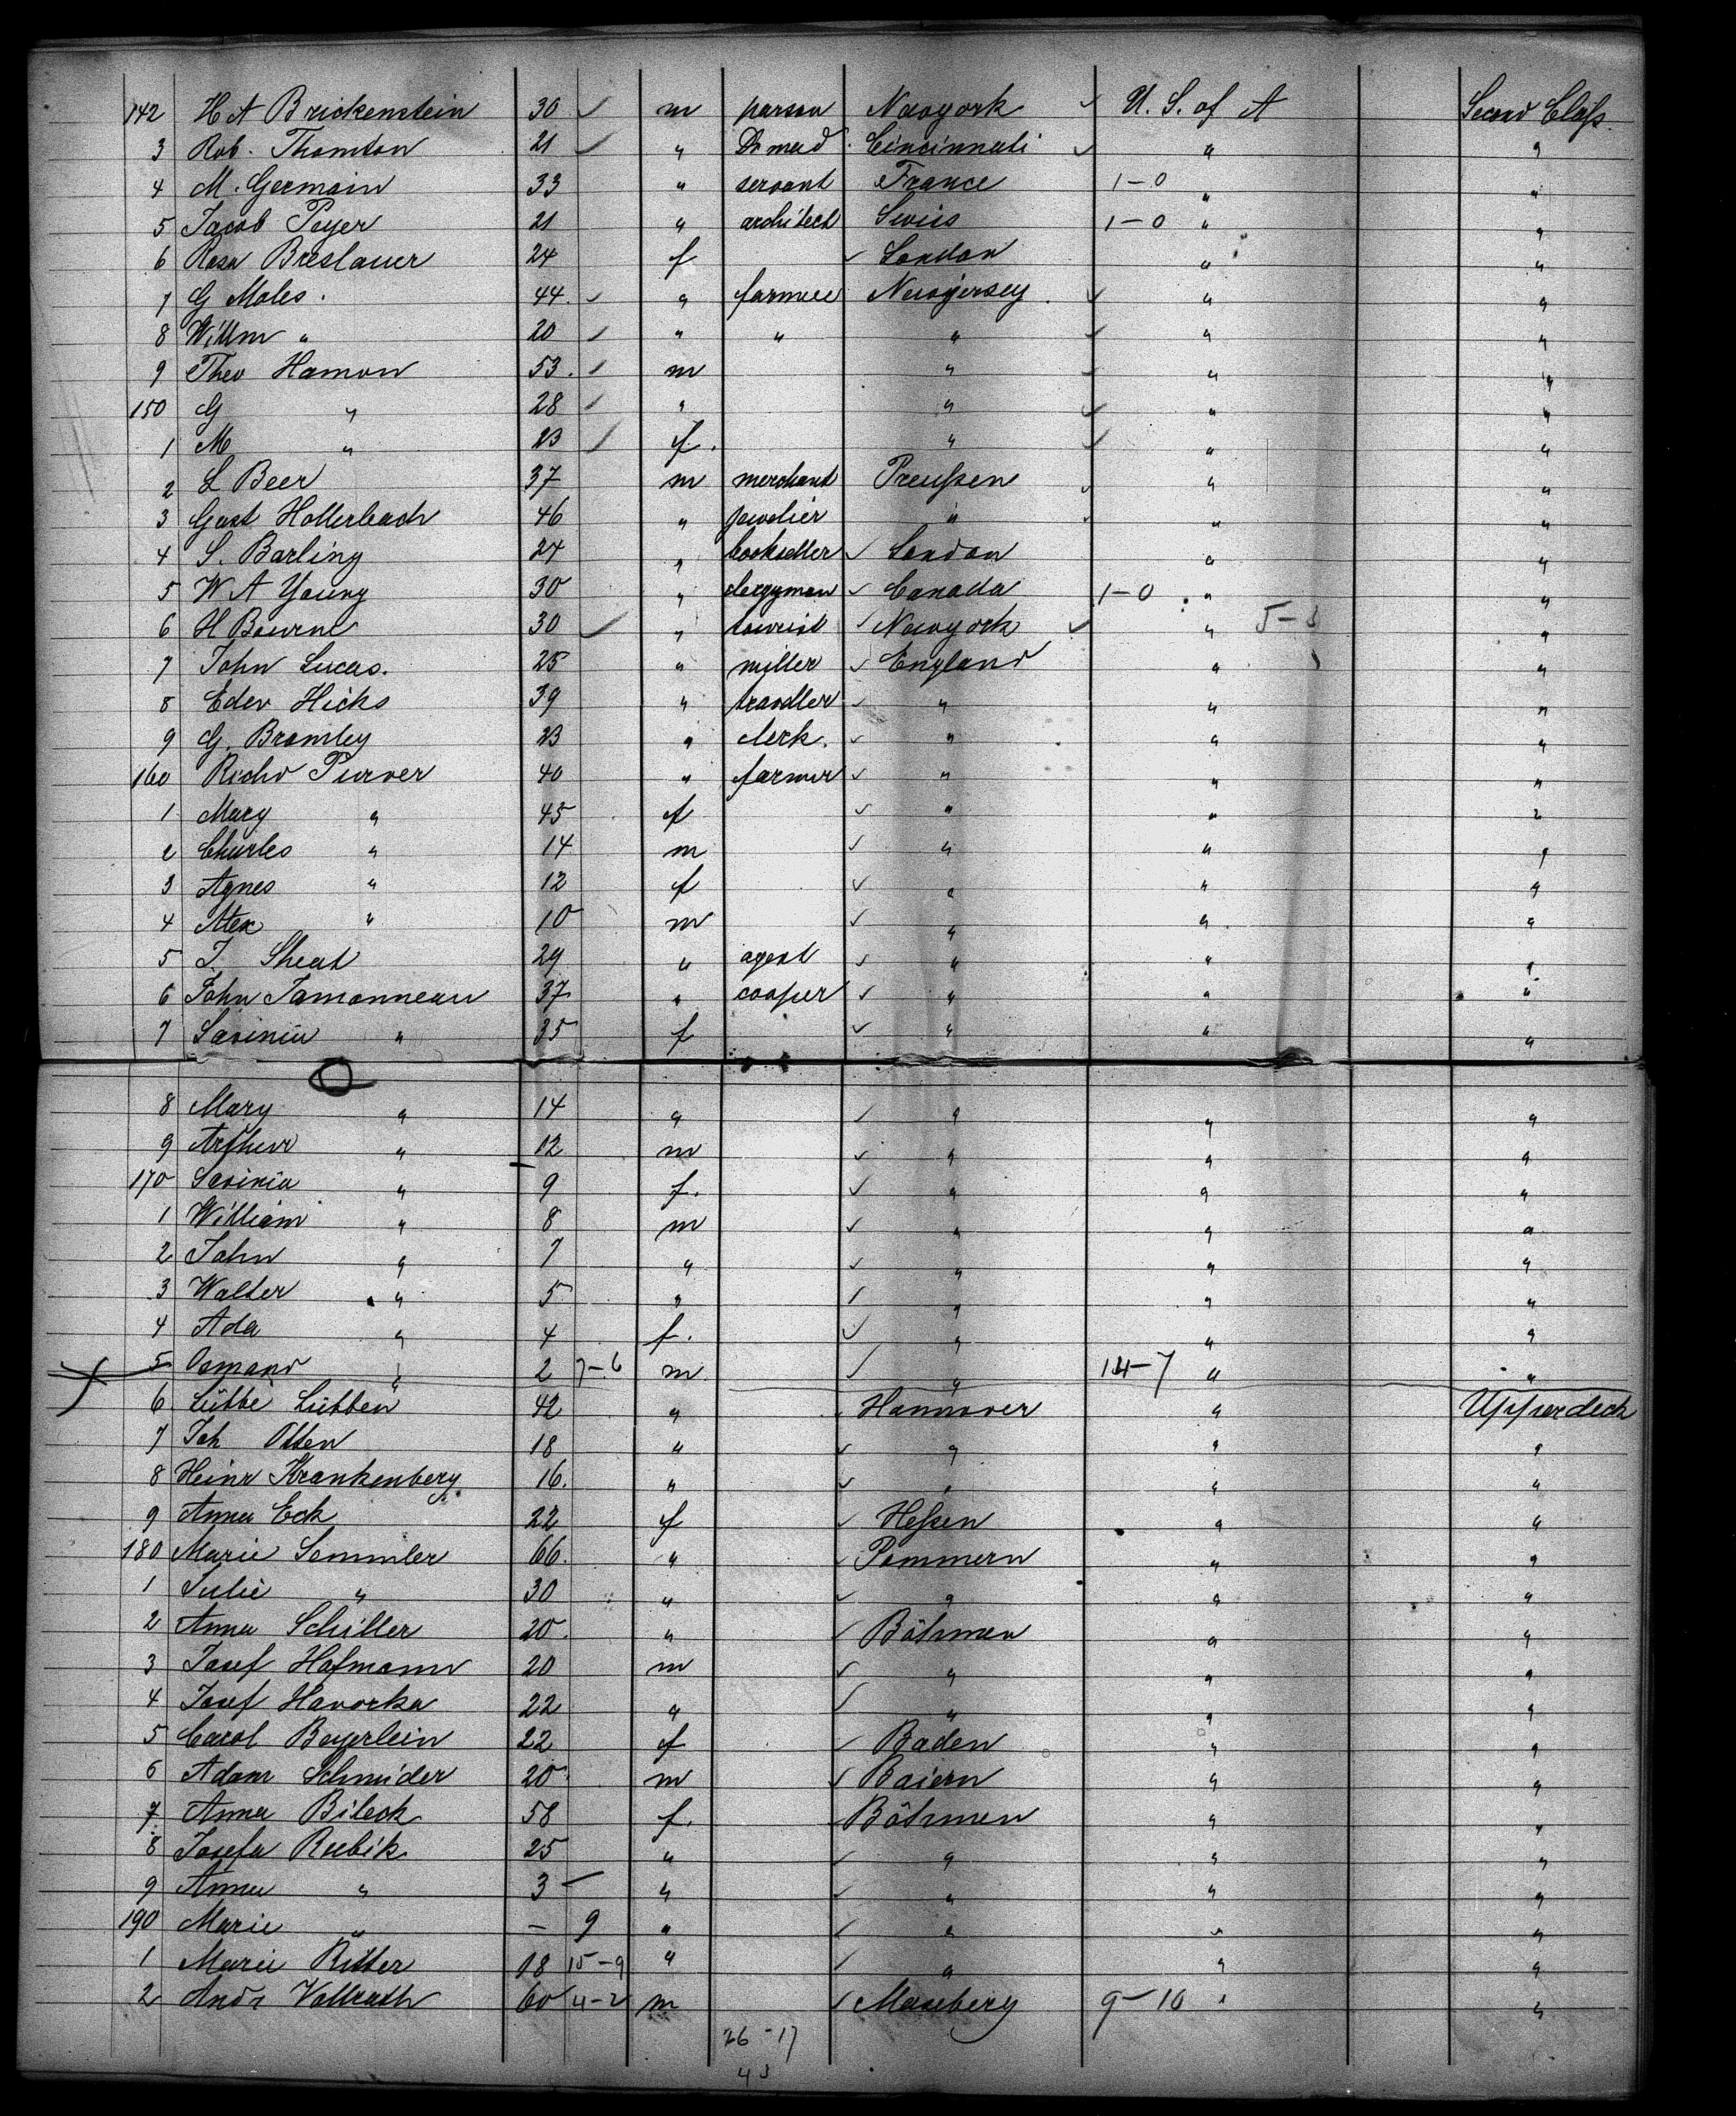 142 H A Brickenstein 30 ✓ m parson Newyork ✓ U. S. of A Second Class.
3 Rob. Thomton 21 ✓ " Dr med. Cincinnati ✓ " "
4 M. Germain 33 " servant France 1-0 " "
5 Jacob Peyer 21 " architect Swiss 1-0 " "
6 Rosa Breslauer 24 f ✓ London " "
7 G Moles. 44. ✓ " farmer Newjersey. ✓ " "
8 Willm " 20 ✓ " " " ✓ " "
9 Theo Hamon 53. ✓ m " ✓ " "
150 G " 28 ✓ " " ✓ " "
1 M " 23 ✓ f. " ✓ " "
2 L Beer 37 m merchant Preußen ✓ " "
3 Gust Hollerbach 46 " jewelier " ✓ " "
4 S. Barling 24 " bookseller ✓ London " "
5 W A Young 30 " clergyman ✓ Canada 1-0 " "
6 H Bourne 30 ✓ " tourist ✓ Newyork ✓ " 5-3 "
7 John Lucas. 25 " miller ✓ England " "
8 Edev Hicks 39 " traveller ✓ " " "
9 G. Bramley 23 " clerk. ✓ " " "
160 Richd Purver 40 " farmer ✓ " " "
1 Mary " 45 f ✓ " " "
2 Charles " 14 m ✓ " " "
3 Agnes " 12 f ✓ " " "
4 Alex " 10 m ✓ " " "
5 J. Sheat 29 " agent ✓ " " "
6 John Jamonneau 37 " cooper ✓ " " "
7 Savinia " 35 f ✓ " " "
8 Mary " 14 " ✓ " " "
9 Arthur " 12 m ✓ " " "
170 Savinia " 9 f. ✓ " " "
1 William " 8 m ✓ " " "
2 John " 7 " ✓ " " "
3 Walter " 5 " ✓ " " "
4 Ada " 4 f. ✓ " " "
5 Osmand " 2 7-6 m ✓ " 14-7 " "
6 Lübbe Lübben 42 " Hannover " Upperdeck
7 Joh Otten 18 " ✓ " " "
8 Heinr Krankenberg. 16. " ✓ " " "
9 Anna Eck 22 f ✓ Heßen " "
180 Marie Semmler 66. " ✓ Pommern " "
1 Julie " 30 " ✓ " " "
2 Anna Schiller 20. " ✓ Böhmen " "
3 Josef Hofmann 20 m ✓ " " "
4 Josef Havorka 22 " ✓ " " "
5 Carol Beyerlein 22 f ✓ Baden " "
6 Adam Schmider 20 m ✓ Baiern " "
7 Anna Bileck 58 f. ✓ Böhmen " "
8 Josefa Rubik 25 " ✓ " " "
9 Anna " 3 - " ✓ " " "
190 Marie " - 9 " ✓ " " "
1 Marie Ritter 18 15-9 " ✓ " " "
2 Andr Vollrath 60 4-2 m ✓ 9-10 " "
26-17
43